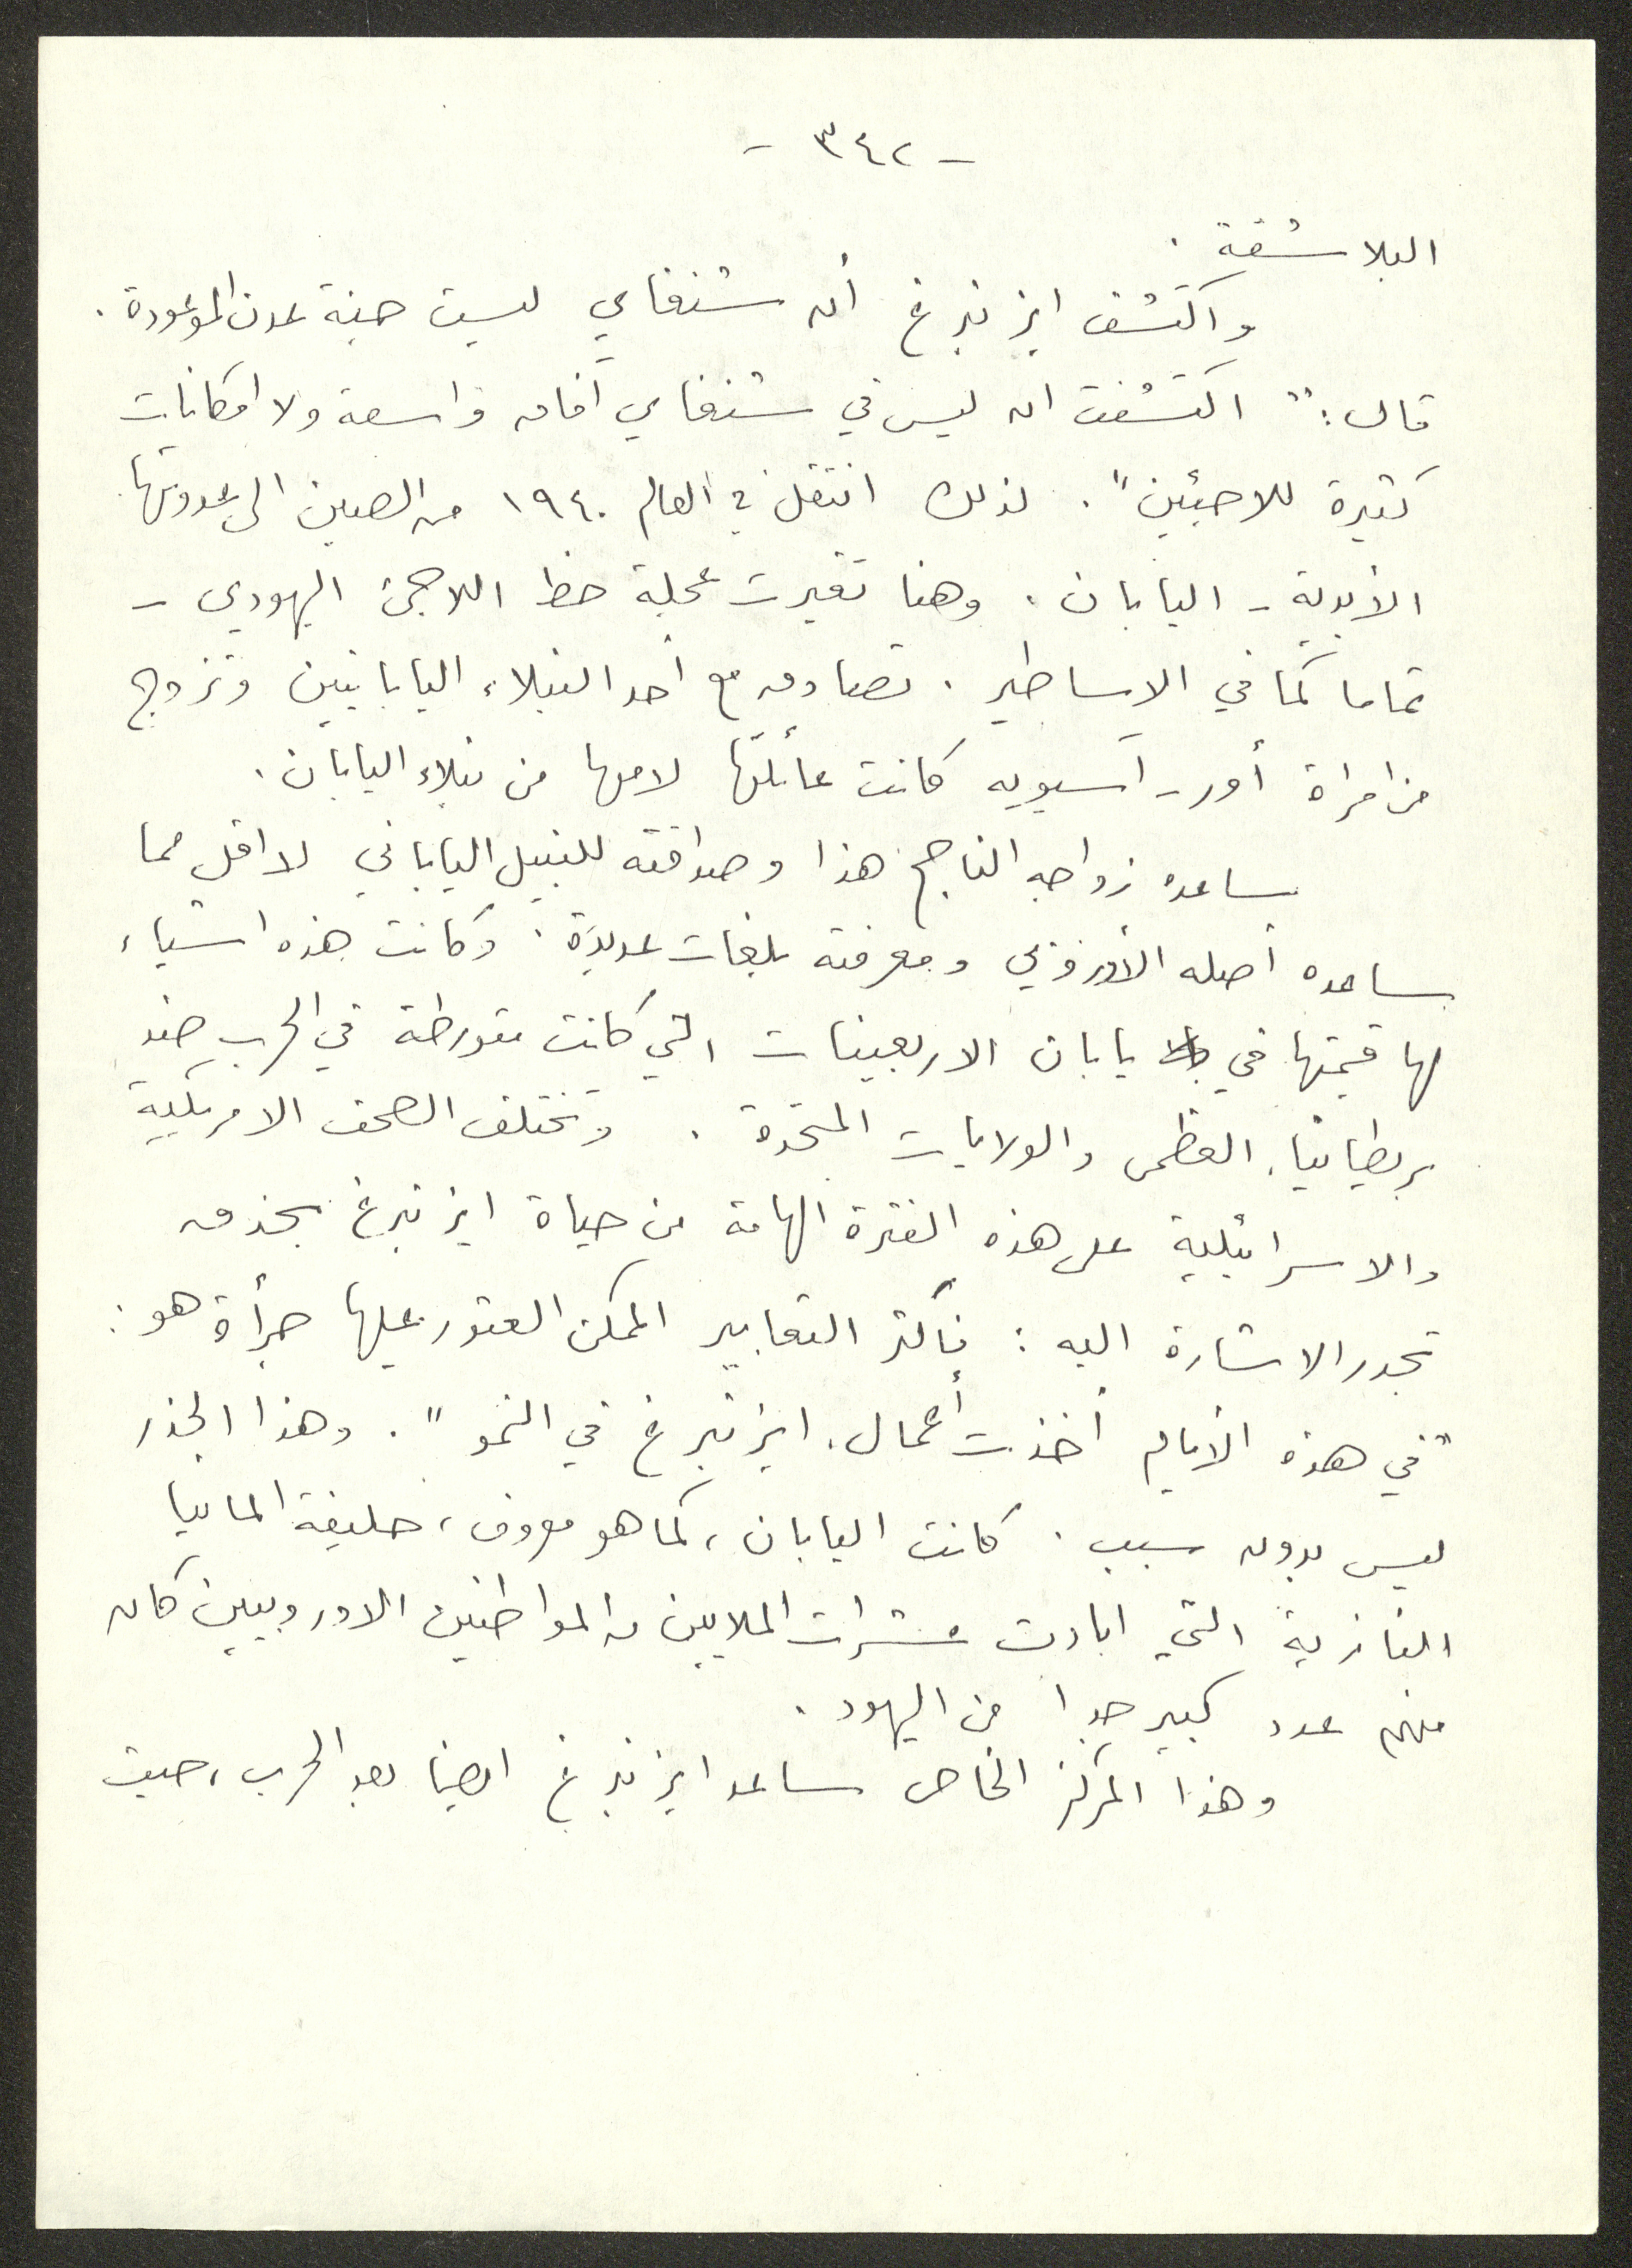 - ٣٤٢ -
البلاشفة .
واكتشف ايزنبرغ أن شنغاي ليست جنة عدن الموعودة .
قال : " اكتشفت ان ليس في شنغاي آفاق واسعة ولا امكانيات
كثيرة للاجئين " . لذلك انتقل في العام ١٩٤٠ من الصين الى عدوتها
الأبدية - اليابان . وهنا تغيرت عجلة حظ اللاجئ اليهودي -
تماما كما في الاساطير . تصادق مع أحد النبلاء اليابانيين وتزوج
من امرأة أور - آسيويه كانت عائلتها لامها من نبلاء اليابان .
ساعده زواجه الناجح هذا وصداقته للنبيل الياباني لا اقل مما
ساعده أصله الأوروبي ومعرفته بلغات عديدة . وكانت هذه اشياء
لها قيمتها في يابان الاربعينات التي كانت متورطة في الحرب ضد
بريطانيا العظمى والولايات المتحدة . وتختلف الصحف الامريكية
والاسرائيلية على هذه الفترة الهامة من حياة ايزنبرغ بحذق
تجدر الاشارة اليه : فأكثر التعابير الممكن العثور عليها جرأة هو :
" في هذه الأيام أخذت أعمال ايزنبرغ في النمو " . وهذا الحذر
ليس بدون سبب . كانت اليابان ، كما هو معروف ، حليفة المانيا
النازية التي ابادت عشرات الملايين من المواطنين الاوروبيين كان
منهم عدد كبير جدا من اليهود .
وهذا المركز الخاص ساعد ايزنبرغ ايضا بعد الحرب ، حيث